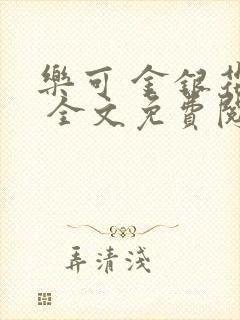 樂可 金銀花
全文免費閱
弄清淺